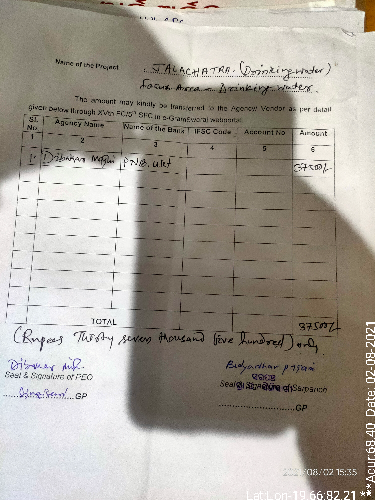 Name of the Project JALACHATRA. (Drinking water)
Focus Area - Drinking water.
The amount may kindly be transferred to the Agency/ Vendor as per detail
given below through XVth FC/5th SFC in e-GramSwaraj webportal.
Sl. No. Agency Name Name of the Bank IFSC Code Account No Amount
1 2 3 4 5 6
1. PNB. 37500/-
TOTAL 37500/-
(Rupees Thirty seven thousand five hundred) only
Seal & Signature of PEO
Seal & Signature of Sarpanch
GP
GP
2021/08/02 15:35
Lat:Lon-19.66:82.21 ***Acur:68.40 Date: 02-08-2021